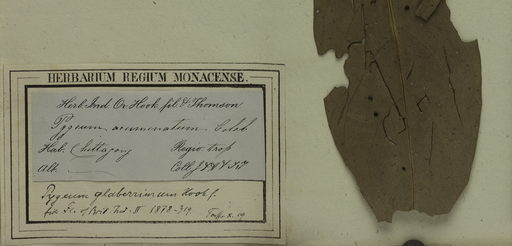 HERBARIUM REGIUM MONACENSE.
Herb. Ind. Or. Hook. fil. & Thomson
Pygeum acuminatum. Coleb.
Hab. Chittagong Regio trop.
Alt. Coll. J.D.H. & T.T.
Pygeum glaberrimum Hook f.
fide Fl. of Brit. Ind. II 1878-319